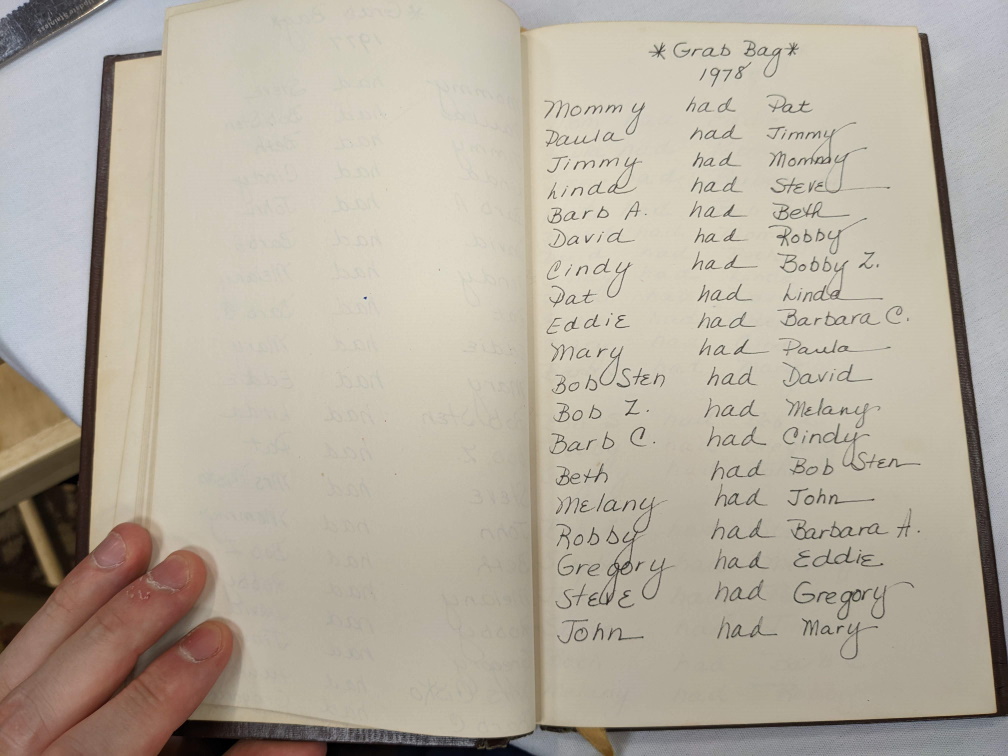 *Grab Bag*
1978
Mommy had Pat
Paula had Jimmy
Jimmy had Mommy
Linda had Steve
Barb A. had Beth
David had Robby
Cindy had Bobby Z.
Pat had Linda
Eddie had Barbara C.
Mary had Paula
Bob Sten had David
Bob Z. had Melany
Barb C. had Cindy
Beth had Bob Sten
Melany had John
Robby had Barbara A.
Gregory had Eddie
Steve had Gregory
John had Mary